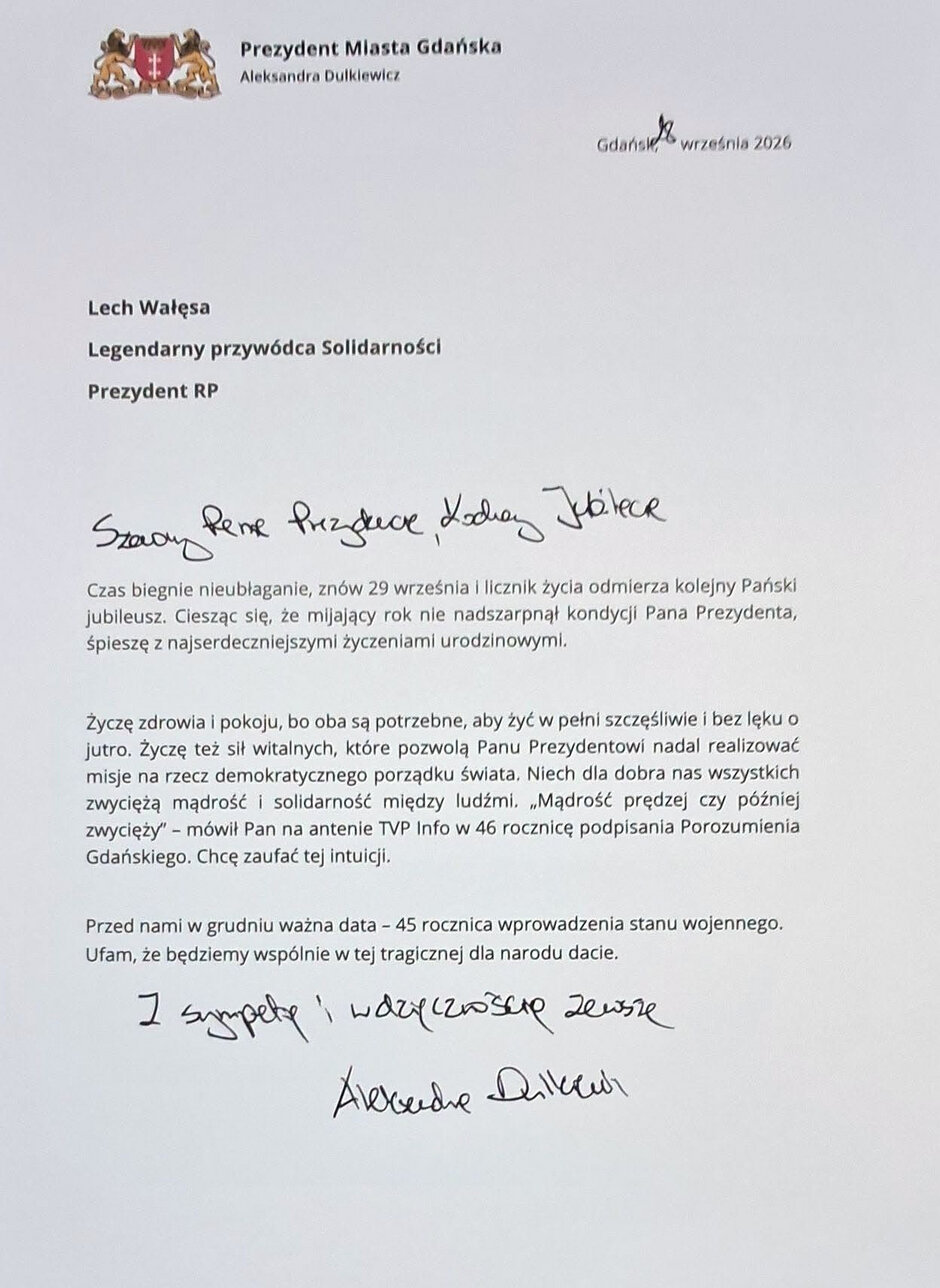 Prezydent Miasta Gdańska
Aleksandra Dulkiewicz
Gdańsk, września 2026
Lech Wałęsa
Legendarny przywódca Solidarności
Prezydent RP
Szanowny Panie Prezydencie, Drogi Jubilacie
Czas biegnie nieubłaganie, znów 29 września i licznik życia odmierza kolejny Pański
jubileusz. Ciesząc się, że mijający rok nie nadszarpnął kondycji Pana Prezydenta,
śpieszę z najserdeczniejszymi życzeniami urodzinowymi.
Życzę zdrowia i pokoju, bo oba są potrzebne, aby żyć w pełni szczęśliwie i bez lęku o
jutro. Życzę też sił witalnych, które pozwolą Panu Prezydentowi nadal realizować
misje na rzecz demokratycznego porządku świata. Niech dla dobra nas wszystkich
zwyciężą mądrość i solidarność między ludźmi. „Mądrość prędzej czy później
zwycięży” – mówił Pan na antenie TVP Info w 46 rocznicę podpisania Porozumienia
Gdańskiego. Chcę zaufać tej intuicji.
Przed nami w grudniu ważna data – 45 rocznica wprowadzenia stanu wojennego.
Ufam, że będziemy wspólnie w tej tragicznej dla narodu dacie.
Z sympatią i wdzięcznością zawsze
Aleksandra Dulkiewicz